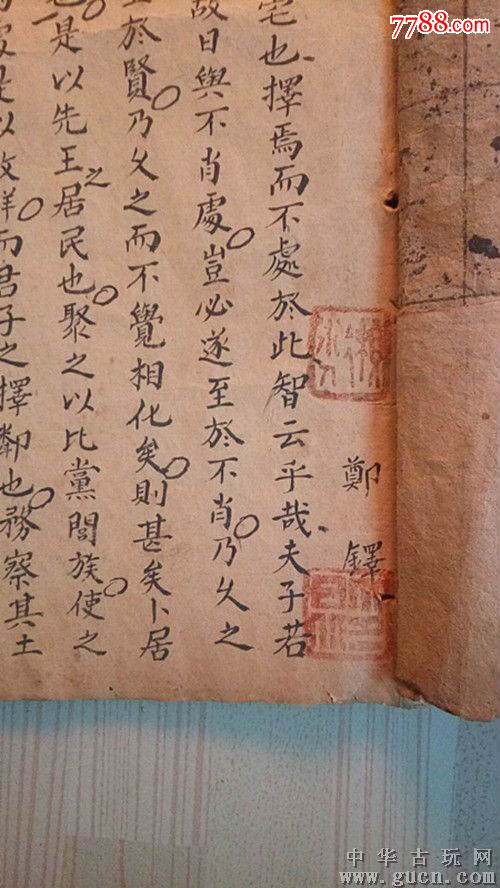 7788.com
鄭鐸
宅也擇焉而不處於此智云乎哉夫子若
故日與不肖處豈必遂至於不肖乃久之
至於賢乃久之而不覺相化矣則甚矣卜居
是以先王之居民也聚之以比黨閭族使之
以故祥而君子之擇鄰也務察其土
中华古玩网
www.gucn.com